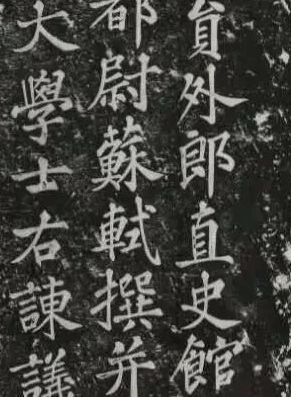 員外郎直史館
都尉蘇軾撰并
大學士右諫議